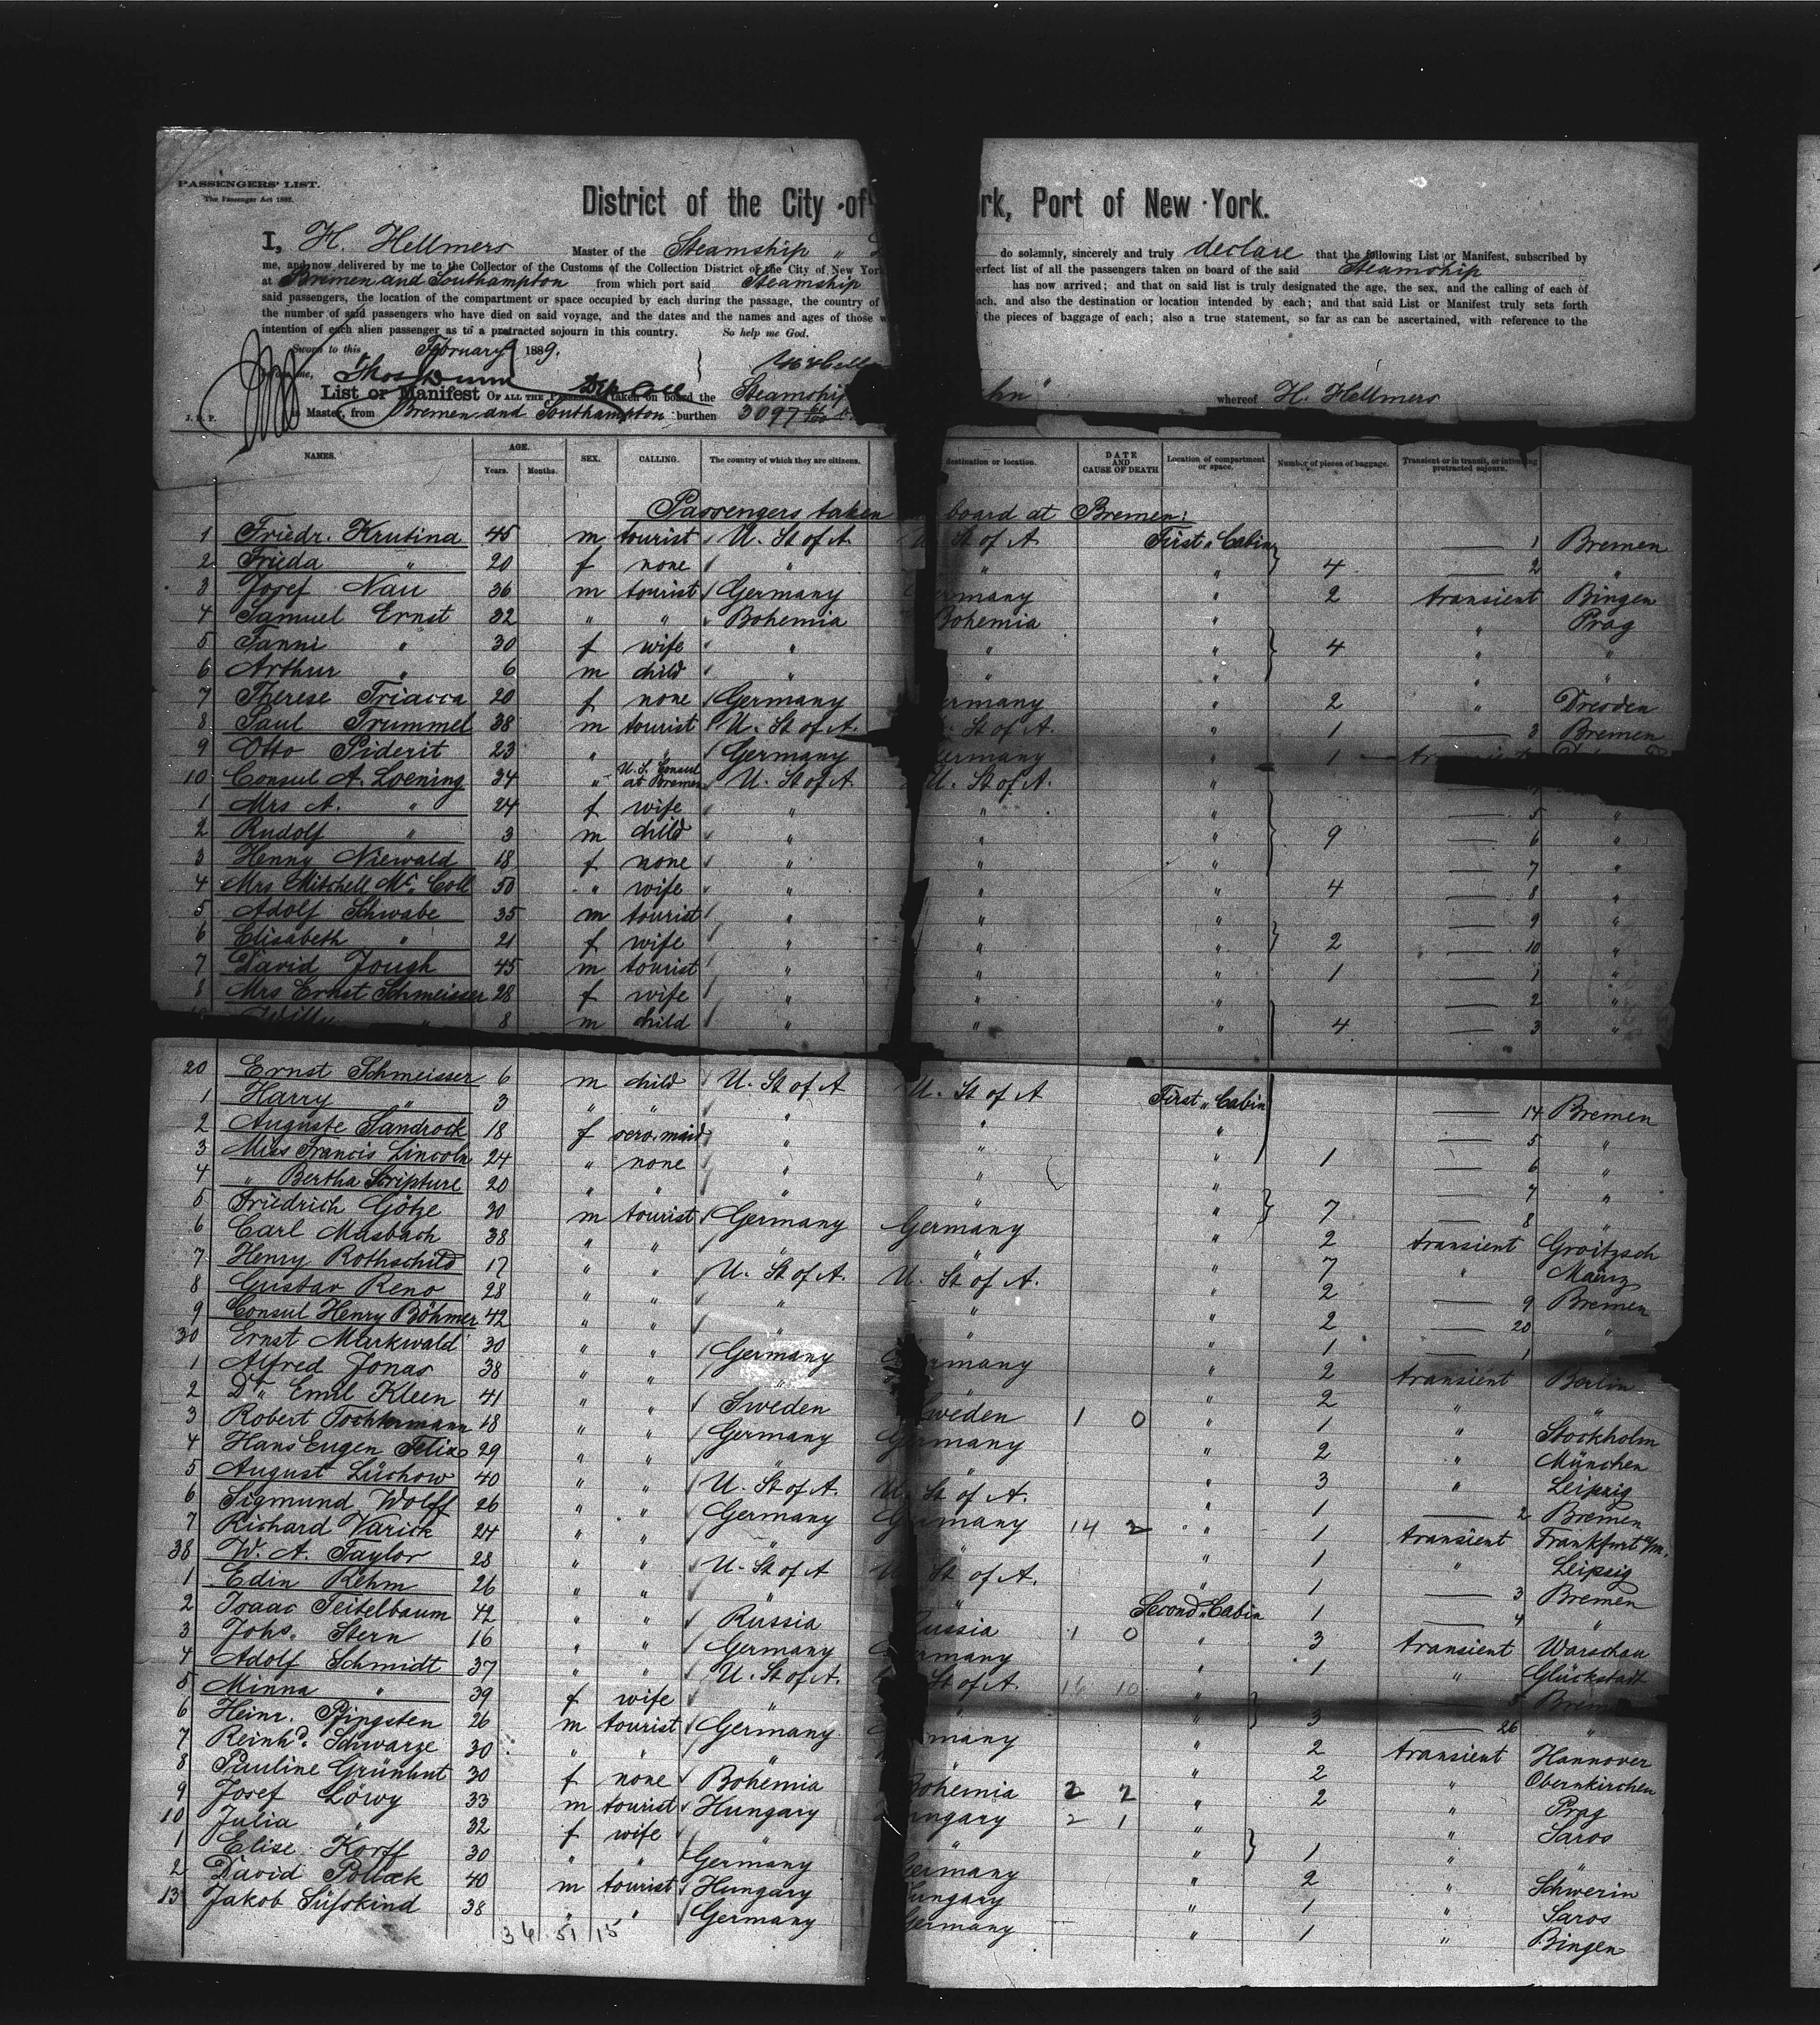 PASSENGERS' LIST.
The Passenger Act 1882.
District of the City of rk, Port of New York.
I, H. Hellmers Master of the Steamship " do solemnly, sincerely and truly declare that the following List or Manifest, subscribed by
me, and now delivered by me to the Collector of the Customs of the Collection District of the City of New York erfect list of all the passengers taken on board of the said Steamship
at Bremen and Southampton from which port said Steamship has now arrived; and that on said list is truly designated the age, the sex, and the calling of each of
said passengers, the location of the compartment or space occupied by each during the passage, the country of ach, and also the destination or location intended by each; and that said List or Manifest truly sets forth
the number of said passengers who have died on said voyage, and the dates and the names and ages of those w the pieces of baggage of each; also a true statement, so far as can be ascertained, with reference to the
intention of each alien passenger as to a protracted sojourn in this country. So help me God.
Sworn to this February 1889.
Thos Dunn
List or Manifest OF ALL THE PASSENGERS taken on board the Steamship hn" whereof H. Hellmers
J. D. P. is Master, from Bremen and Southampton burthen 3097
NAMES. AGE. Years. Months. SEX. CALLING. The country of which they are citizens. destination or location. DATE AND CAUSE OF DEATH Location of compartment or space. Number of pieces of baggage. Transient or in transit, or intending protracted sojourn.
Passengers taken board at Bremen:
1 Friedr. Krutina 45 m tourist U. St of A. U. St of A First " Cabin 1 Bremen
2 Frieda " 20 f none " " " 4 2 "
3 Josef Nau 36 m tourist Germany Germany " 2 transient Bingen
4 Samuel Ernst 32 " " Bohemia Bohemia " " Prag
5 Fanni " 30 f wife " " " 4 " "
6 Arthur " 6 m child " " " " "
7 Therese Triacca 20 f none Germany ermany " 2 " Dresden
8 Paul Trummel 38 m tourist U. St of A. St of A. " 1 3 Bremen
9 Otto Piderit 23 " " Germany ermany " 1 transient
10 Consul A. Loening 34 " U. S. Consul at Bremen U. St of A. U. St of A. "
1 Mrs A. " 24 f wife " " " 5 "
2 Rudolf " 3 m child " " " 9 6 "
3 Henny Niewald 18 f none " " " 7 "
4 Mrs Mitchell Mc Coll 50 " wife " " " 4 8 "
5 Adolf Schwabe 35 m tourist " " " 9 "
6 Elisabeth " 21 f wife " " " 2 10 "
7 David Jough 45 m tourist " " " 1 1 "
8 Mrs Ernst Schmeisser 28 f wife " " " 2 "
Willy " 8 m child " " " 4 3 "
20 Ernst Schmeisser 6 m child U. St of A U. St of A First " Cabin 14 Bremen
1 Harry " 3 " " " " " 5 "
2 Auguste Sandrock 18 f serv. maid " " " 6 "
3 Miss Francis Lincoln 24 " none " " " 1 7 "
4 " Bertha Scripture 20 " " " " " 8 "
5 Friedrich Götze 30 m tourist Germany Germany " 7 transient Groitzsch
6 Carl Masbach 38 " " " " " 2 " Mainz
7 Henry Rothschild 17 " " U. St of A. U. St of A. " 7 9 Bremen
8 Gustav Reno 28 " " " " " 2 20 "
9 Consul Henry Böhmer 42 " " " " " 2 1 "
30 Ernst Markwald 30 " " Germany Germany " 1 transient Berlin
1 Alfred Jonas 38 " " " " " 2 " "
2 Dr. Emil Kleen 41 " " Sweden Sweden 1 0 " 2 " Stockholm
3 Robert Tochtermann 18 " " Germany Germany " 1 " München
4 Hans Eugen Felix 29 " " " " " 2 " Leipzig
5 August Lüchow 40 " " U. St of A. U. St of A. " 3 2 Bremen
6 Sigmund Wolff 26 " " Germany Germany 14 2 " 1 transient Frankfurt a/m.
7 Richard Varick 24 " " " " " 1 " Leipzig
38 W. A. Taylor 28 " " U. St of A St of A. " 1 3 Bremen
1 Edin Rehm 26 " " " " Second " Cabin 1 4 "
2 Isaac Teitelbaum 42 " " Russia Russia 1 0 " 1 transient Warschau
3 Johs. Stern 16 " " Germany Germany " 3 " Glückstadt
4 Adolf Schmidt 37 " " U. St of A. St of A. 16 10 " 1 5 Bremen
5 Minna " 39 f wife " " " 3 26 "
6 Heinr. Pfingsten 26 m tourist Germany many " 2 transient Hannover
7 Reinhd. Schwarze 30 " " " " " 2 " Obernkirchen
8 Pauline Grünhut 30 f none Bohemia Bohemia 2 2 " 2 " Prag
9 Josef Löwy 33 m tourist Hungary ungary 2 1 " " Saros
10 Julia " 32 f wife " " " 1 " "
1 Elise Korff 30 " " Germany Germany " 2 " Schwerin
2 David Pollack 40 m tourist Hungary ungary " 1 " Saros
13 Jakob Süfskind 38 " " Germany Germany " 1 " Bingen
36 51 15